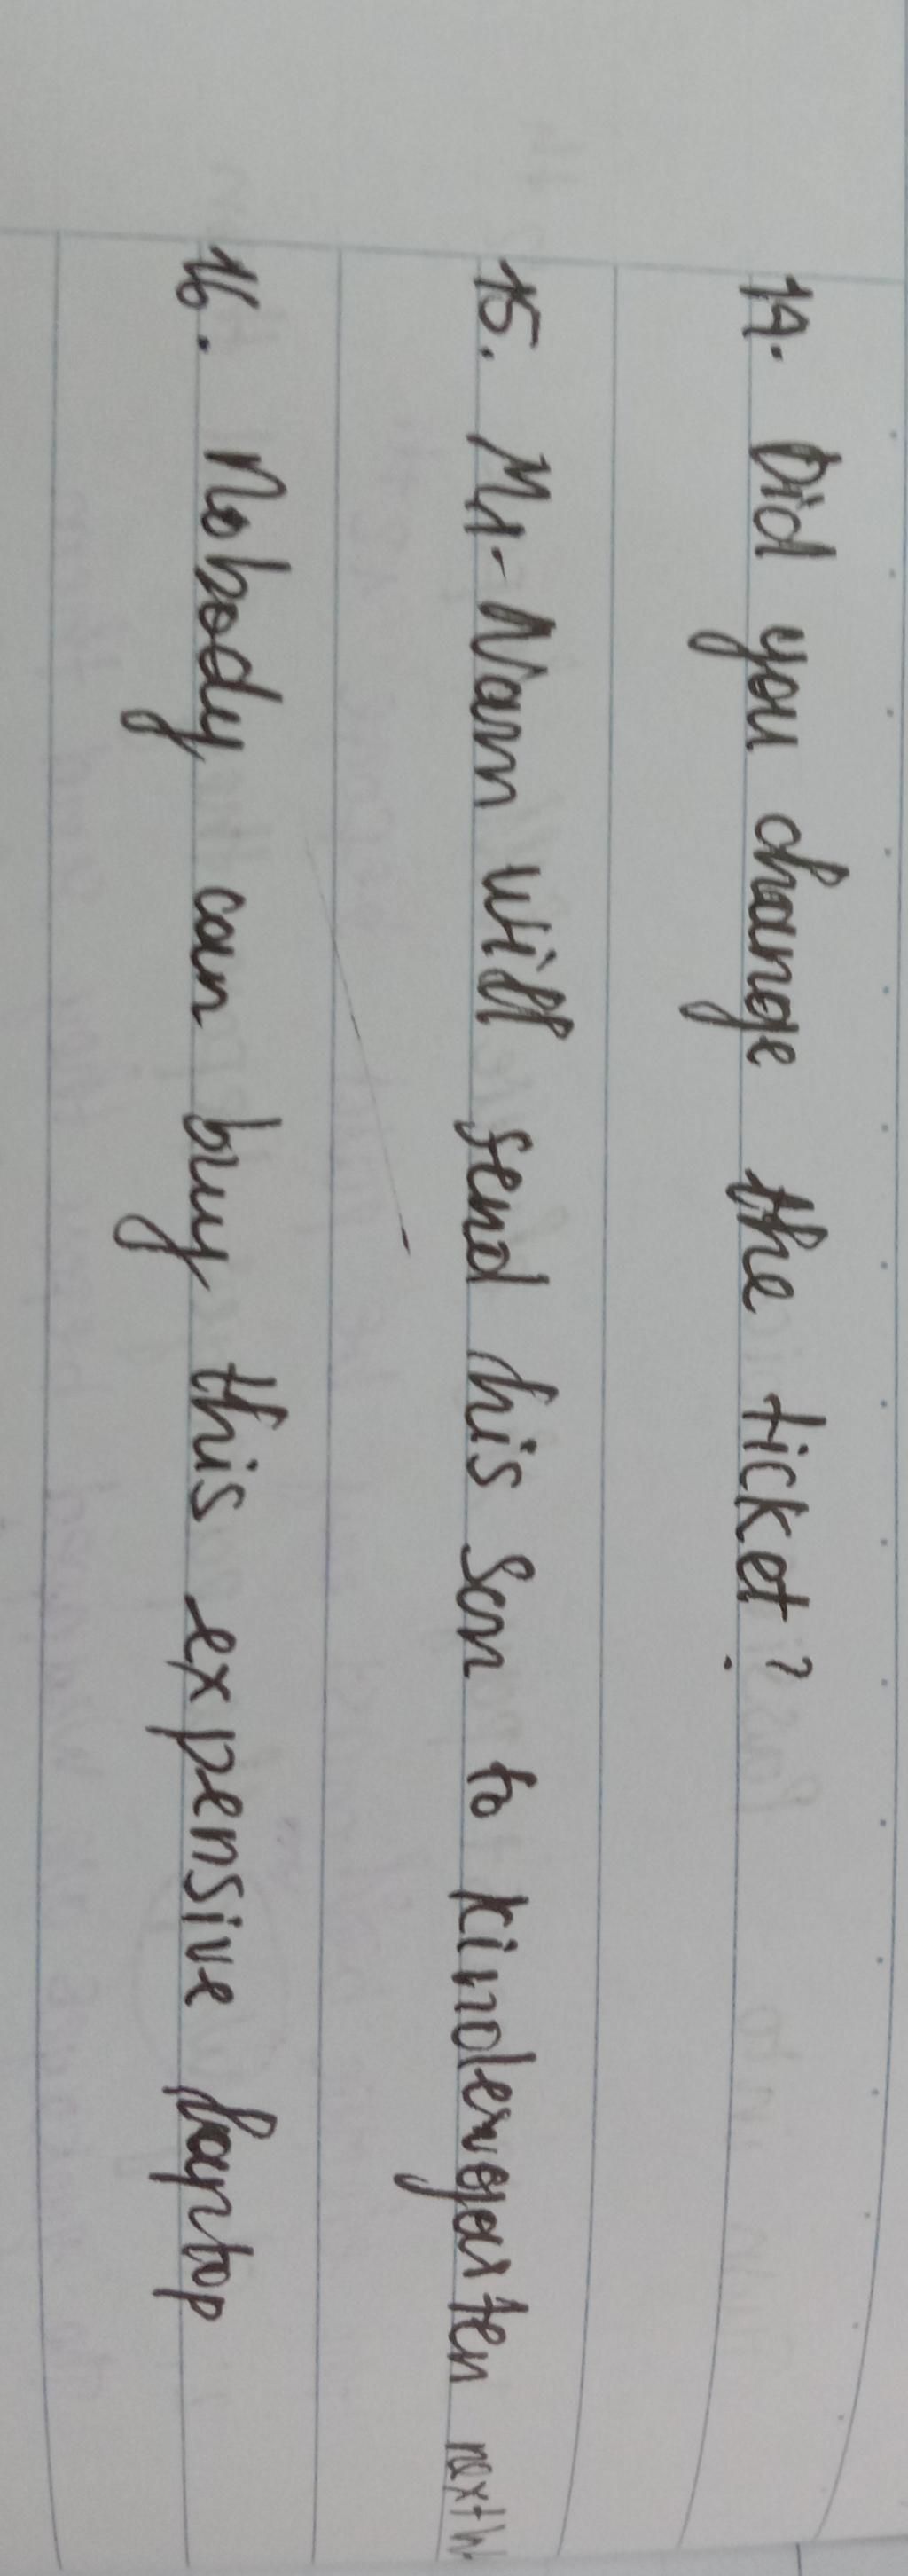 14. Did you change the ticket?
15. Mr. Nam will send his son to kindergarten next w
16. Nobody can buy this expensive laptop